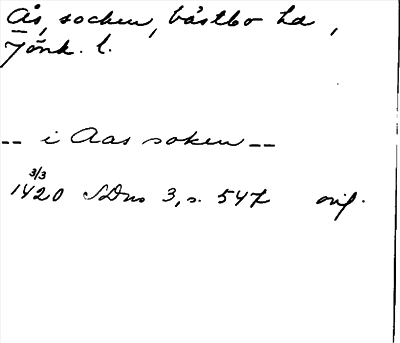 Ås, socken, Västbo hd,
Jönk. l.
-- i Aas soken --
3/3
1420 SDns 3, s. 547 orig.